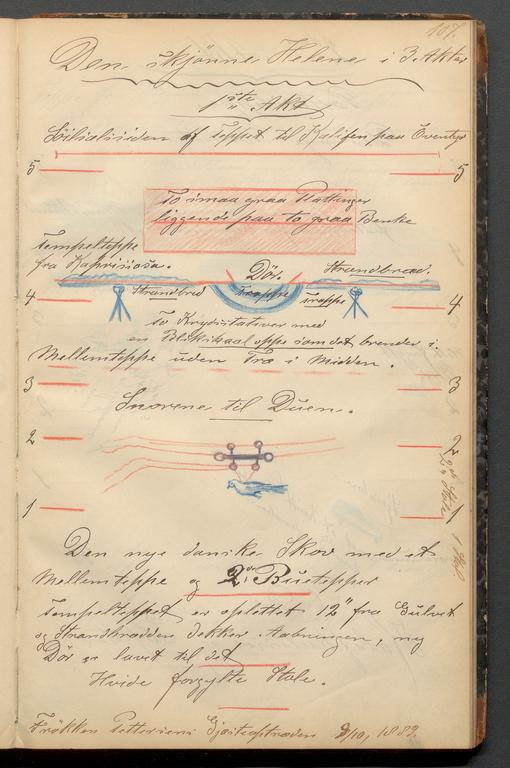 107.
Den skjønne Helene i 3 Akter
1ste Akt
af Teppet til Kalifen paa Eventyr
5 5
To smaa graa Plattinger
liggende paa to graa Benke
Tempelteppe
fra Kaprisiosa.
Dör.
Strandbred.
Strandbred Trappe trappe
4 4
To Krydsstativer med
en Blikskaal oppe som det brender i.
Mellemteppe uden Træ i Midten.
3 3
Snorene til Duen.
2 2
1 1
Den nye danske Skov med et
Mellemteppe og 2de Buetepper
Tempelteppet er opløttet 12" fra Gulvet
og Strandbredden dekker Aabningen, ny
Dör er lavet til det
Hvide forgylte Stole.
Frökken Petersens 3/10, 1889.